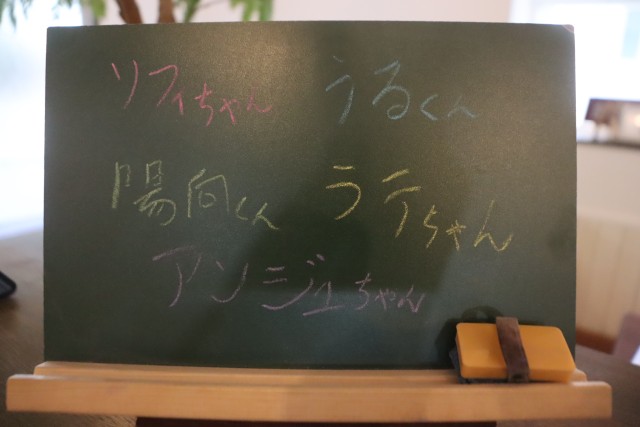 ソフィちゃん うるくん
陽向くん ラテちゃん
アンジュちゃん